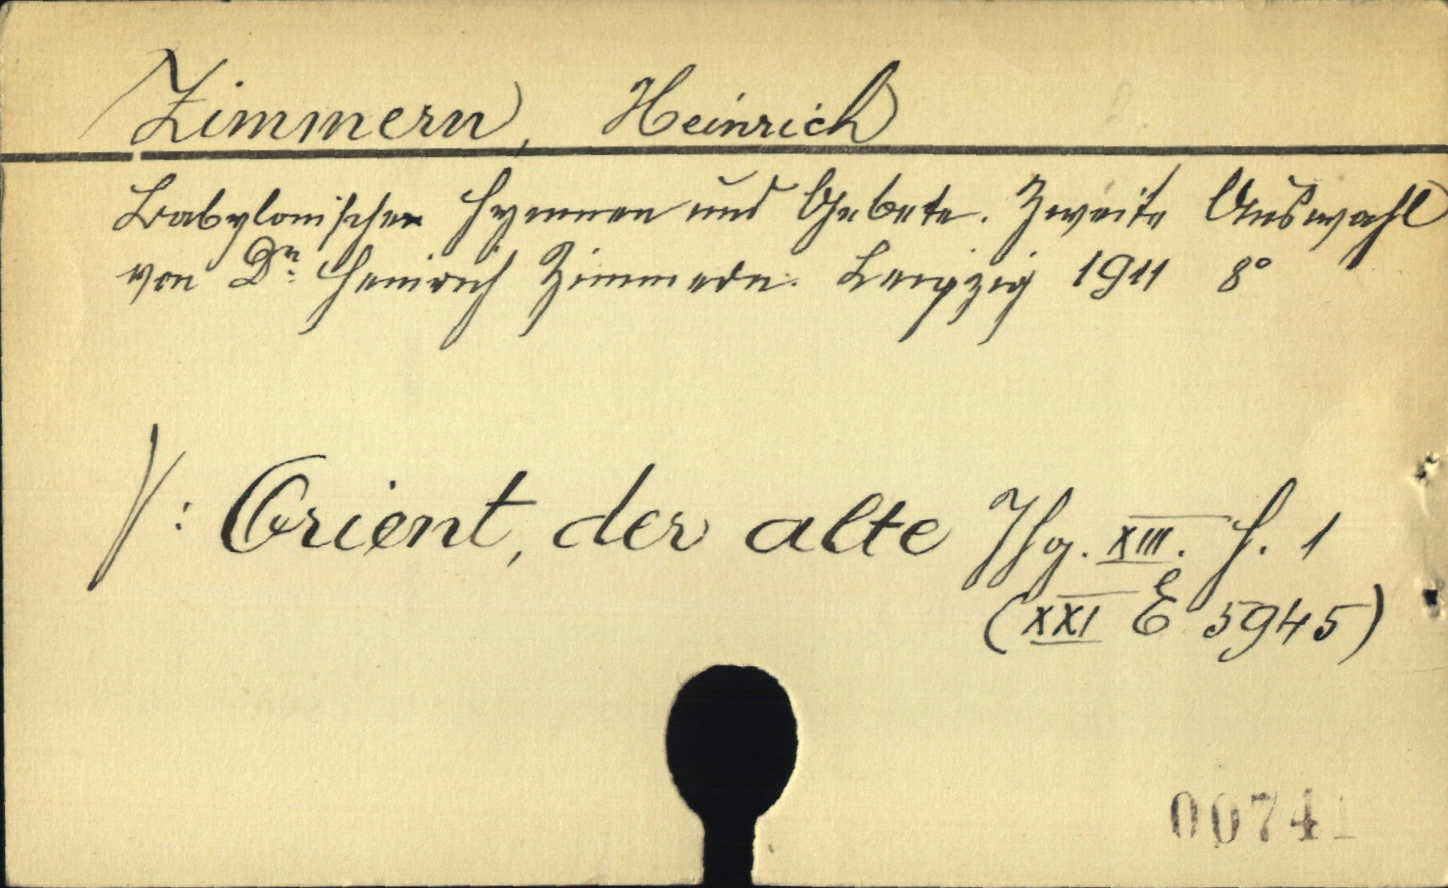 Zimmern, Heinrich
Babylonische Hymnen und Gebete. Zweite Auswahl
von Dr. Heinrich Zimmern. Leipzig 1911 8°
V: Orient, der alte Jhg. XIII. H. 1
(XXI E 5945)
00741